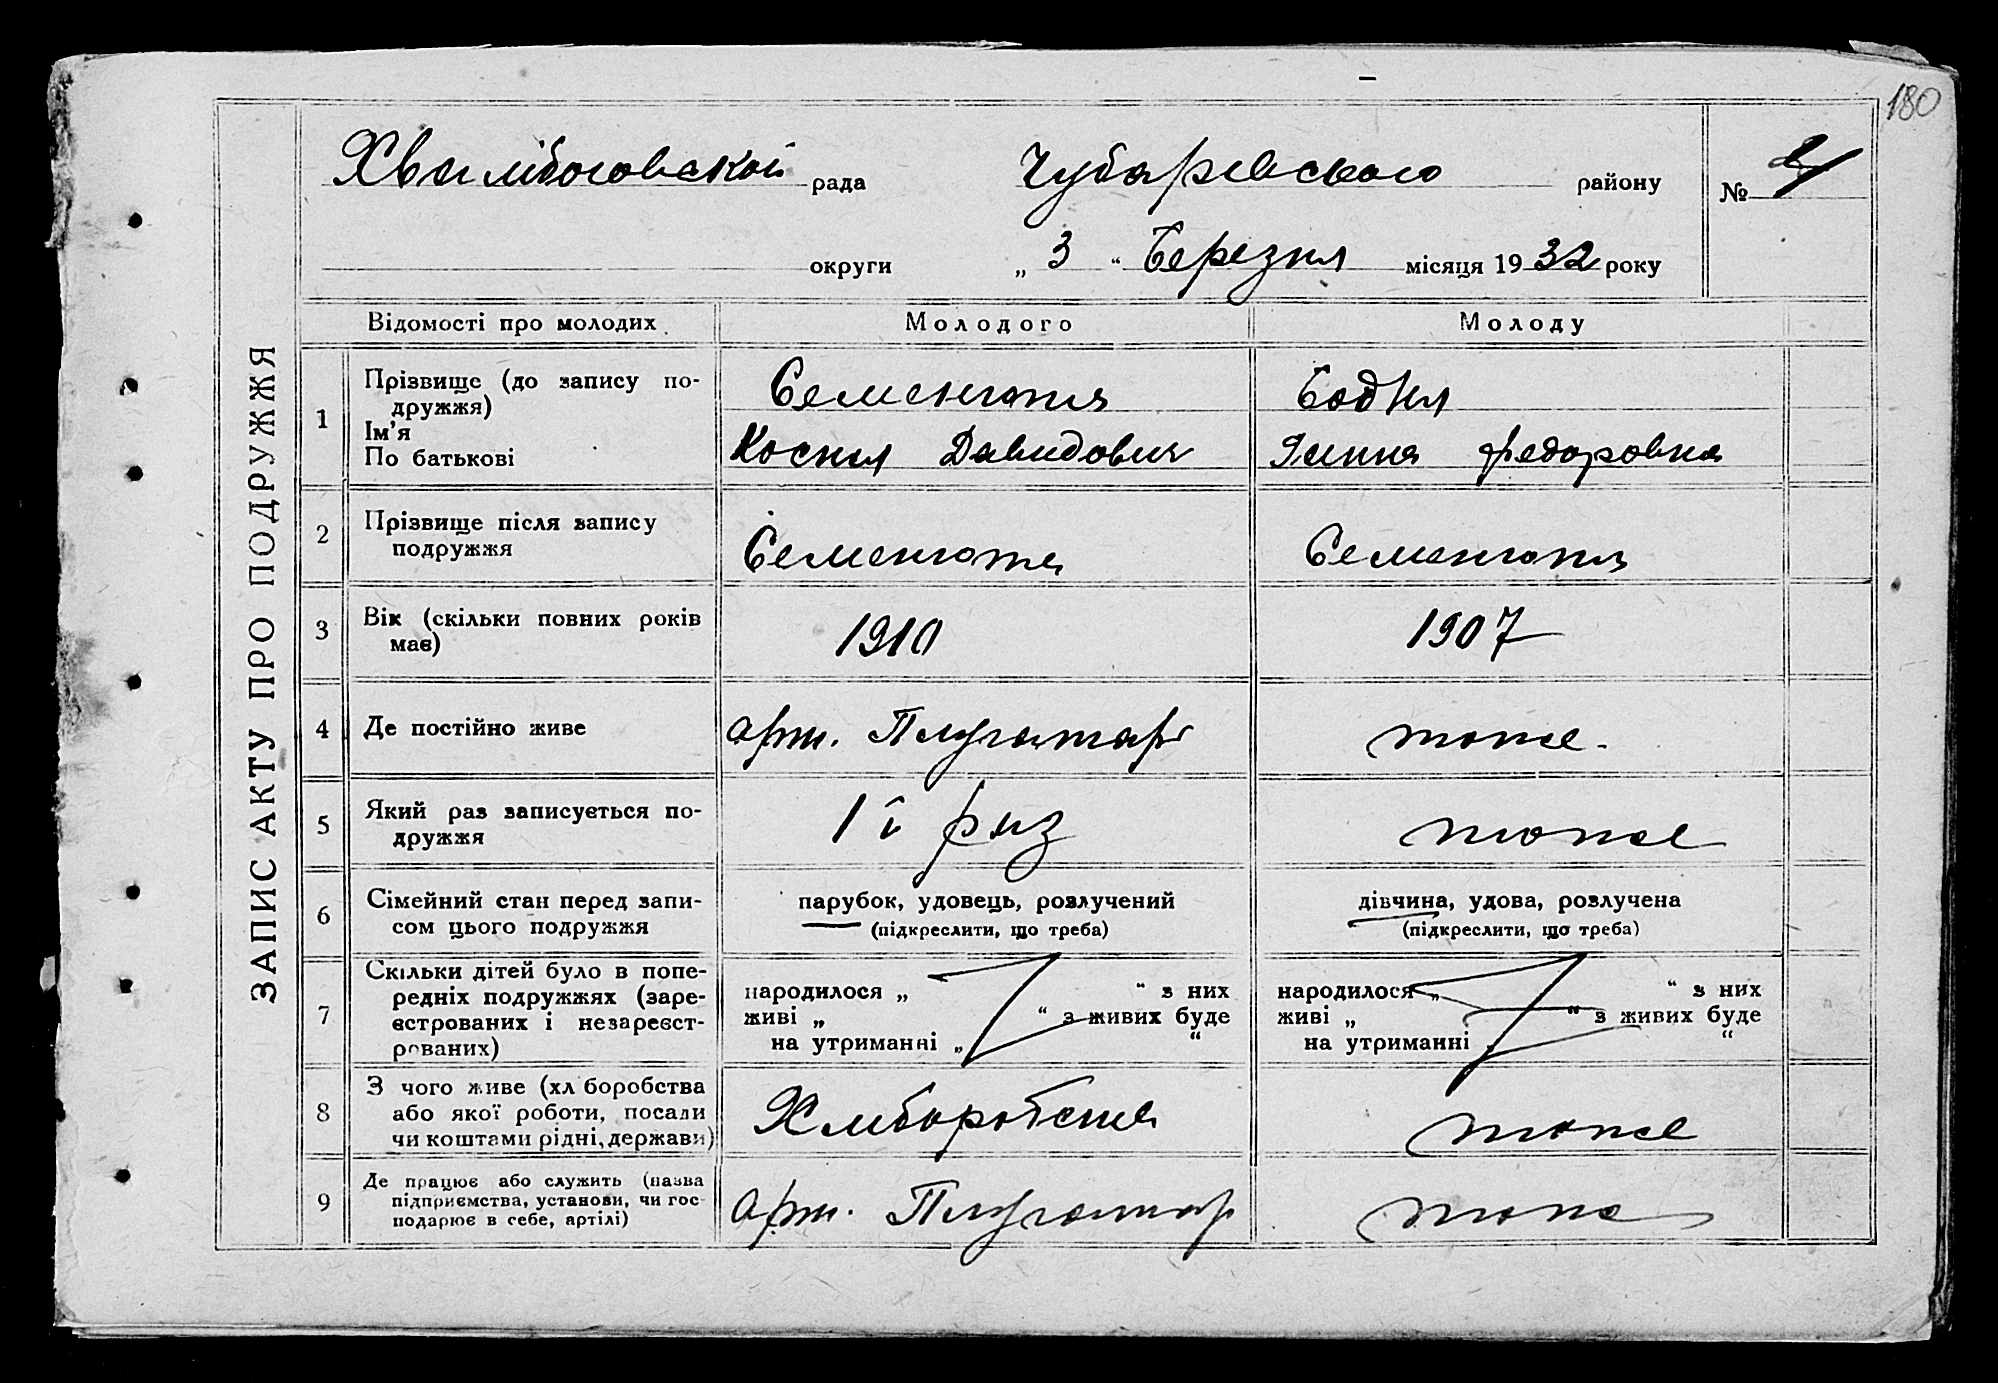 180
ЗАПИС АКТУ ПРО ПОДРУЖЖЯ
Хвалібоговской рада Чубаревського району №
округи „ 3 “ Березня місяця 1932 року
Відомості про молодих Молодого Молоду
1 Прізвище (до запису по-
дружжя)
Ім’я
По батькові
Семенютя Бодня
Косня Давидович Ганна Федоровна
2 Прізвище після запису
подружжя
Семенюта Семенютя
3 Вік (скільки повних років
має)
1910 1907
4 Де постійно живе арт. Плугатарь тоже.
5 Який раз записується по-
дружжя
1й раз тоже
6 Сімейний стан перед запи-
сом цього подружжя
парубок, удовець, розлучений
(підкреслити, що треба)
дівчина, удова, розлучена
(підкреслити, що треба)
7 Скільки дітей було в попе-
редніх подружжях (заре-
єстрованих і незареєст-
рованих)
народилося „ “ з них
живі „ “ з живих буде
на утриманні „ “
народилося „ “ з них
живі „ “ з живих буде
на утриманні „ “
8 З чого живе (хл боробства
або якої роботи, посади
чи коштами рідні, держави)
Хліборобства тоже
9 Де працює або служить (назва
підприємства, установи, чи гос-
подарює в себе, артілі)
арт. Плугатар тоже